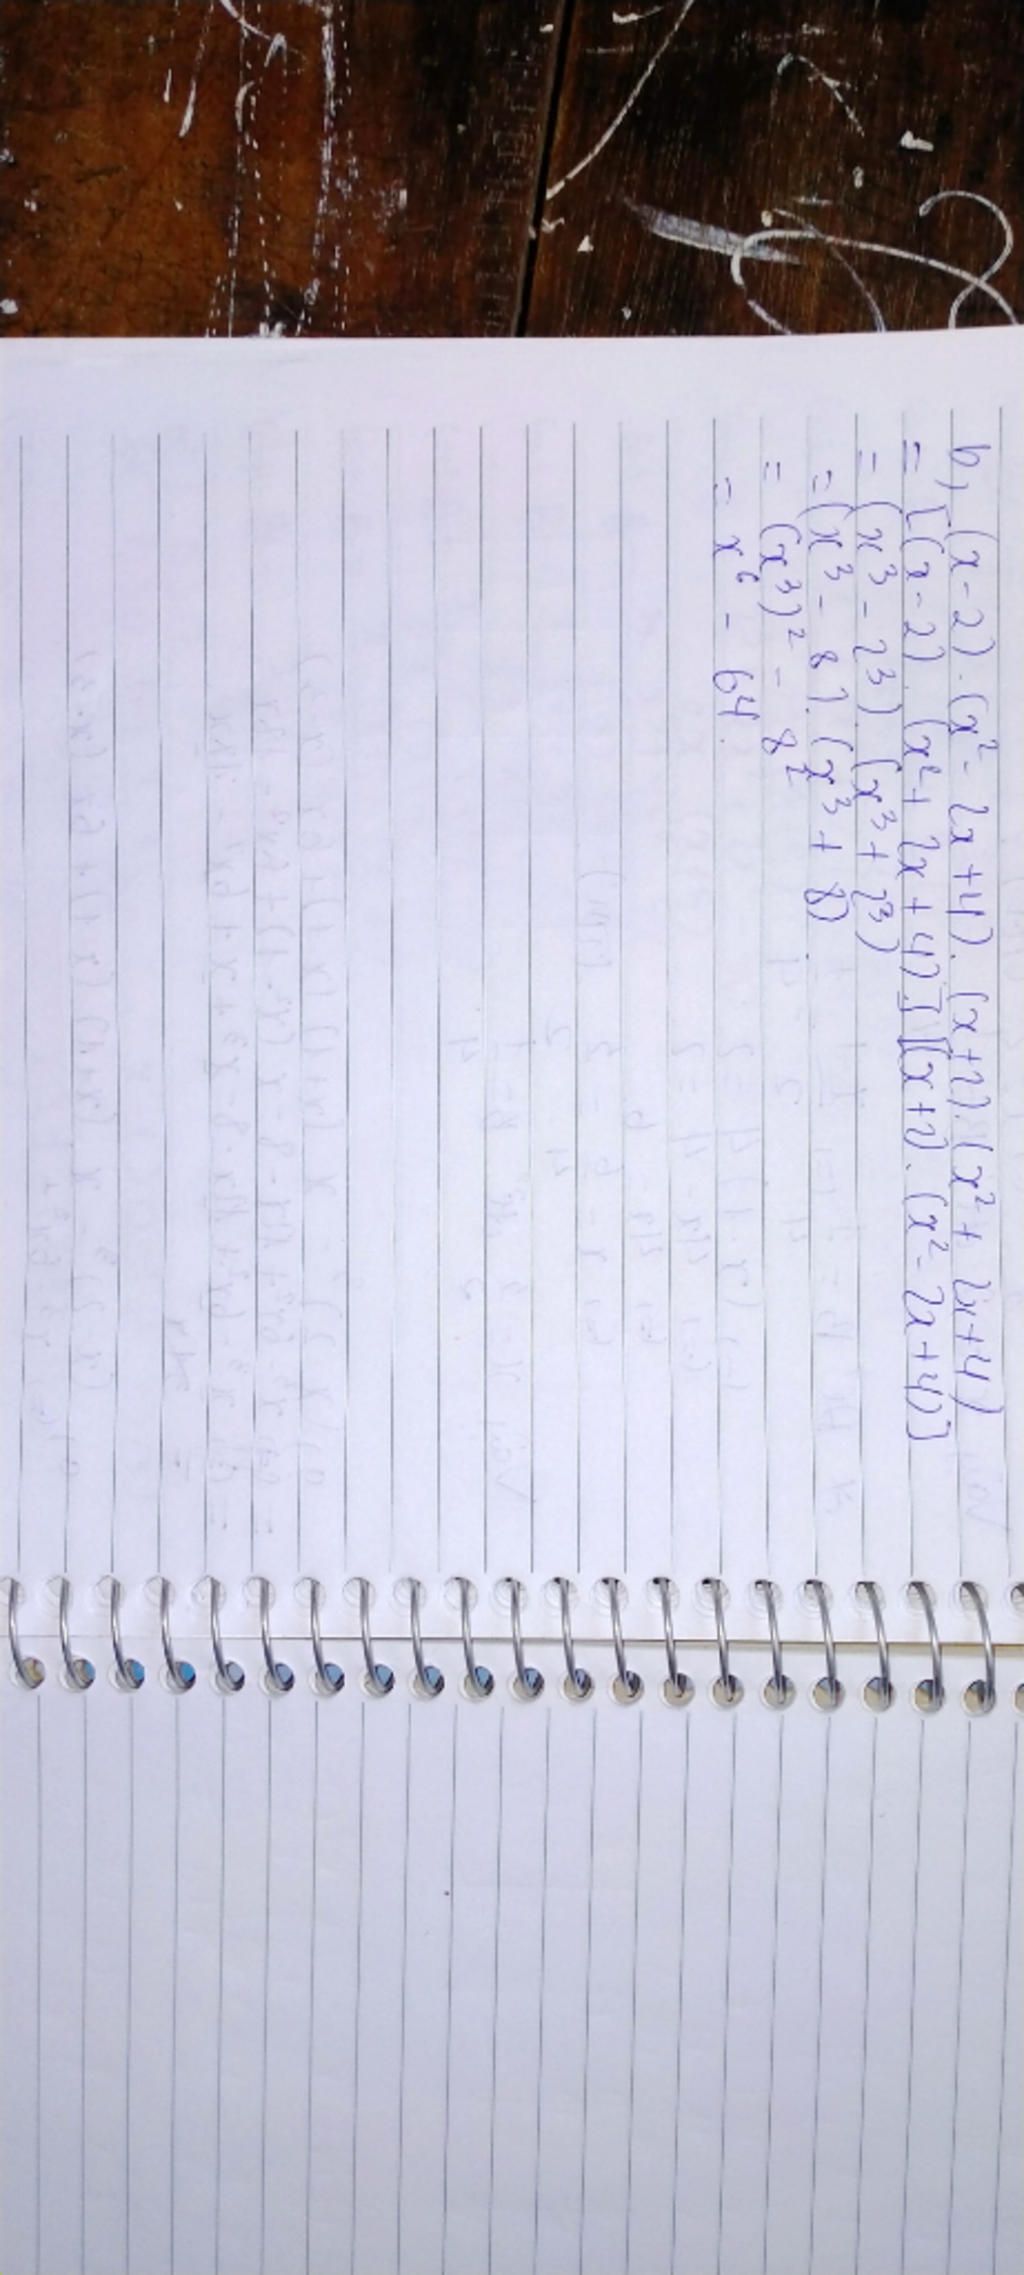 b, (x-2).(x²-2x+4).(x+2).(x²+2x+4)
= [(x-2).(x²+2x+4)].[(x+2).(x²-2x+4)]
= (x³-2³).(x³+2³)
= (x³-8).(x³+8)
= (x³)²-8²
= x⁶-64.